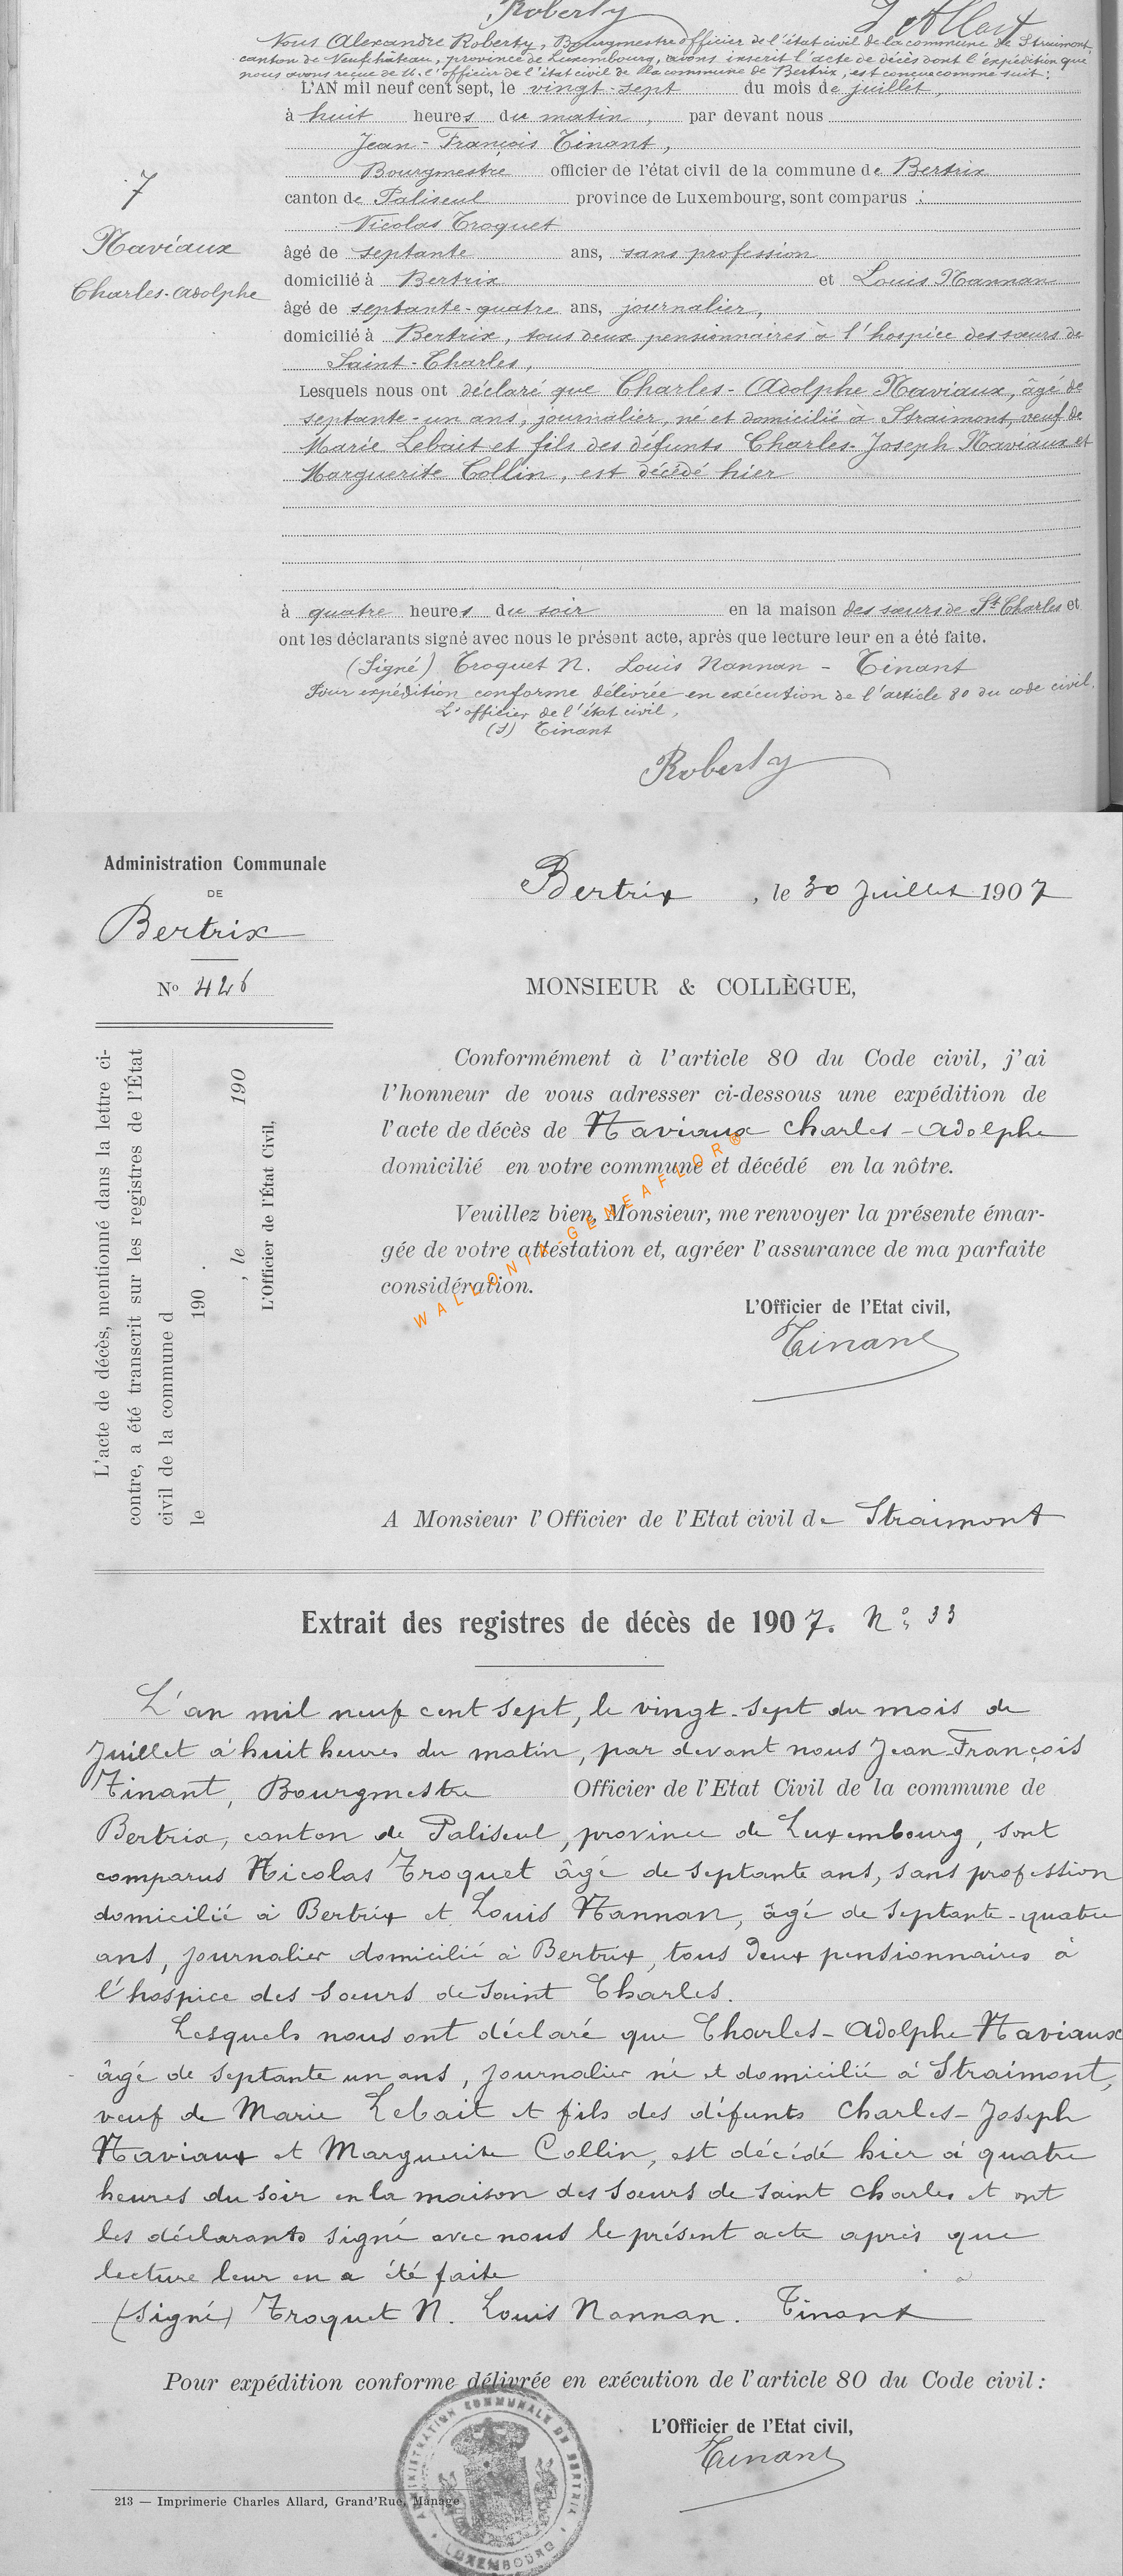 Roberty
Nous Alexandre Roberty, Bourgmestre officier de l'état civil de la commune de Straimont,
canton de Neufchâteau, province de Luxembourg, avons inscrit l'acte de décès dont l'expédition que
nous avons reçue de M. l'officier de l'état civil de la commune de Bertrix, est conçue comme suit :
L'AN mil neuf cent sept, le vingt-sept du mois de juillet,
à huit heures du matin, par devant nous
Jean-François Tinant,
Bourgmestre officier de l'état civil de la commune de Bertrix
canton de Paliseul province de Luxembourg, sont comparus :
Nicolas Troquet
7
Naviaux
Charles-Adolphe
âgé de septante ans, sans profession
domicilié à Bertrix et Louis Nannan
âgé de septante-quatre ans, journalier,
domicilié à Bertrix, tous deux pensionnaires à l'hospice des sœurs de
Saint-Charles,
Lesquels nous ont déclaré que Charles-Adolphe Naviaux, âgé de
septante-un ans, journalier, né et domicilié à Straimont, veuf de
Marie Lebait et fils des défunts Charles-Joseph Naviaux et
Marguerite Collin, est décédé hier
à quatre heures du soir en la maison des sœurs de St Charles et
ont les déclarants signé avec nous le présent acte, après que lecture leur en a été faite.
(Signé) Troquet N. Louis Nannan - Tinant
Pour expédition conforme délivrée en exécution de l'article 80 du code civil.
L'officier de l'état civil,
(S) Tinant
Roberty
Administration Communale
DE
Bertrix
No 426
Bertrix, le 30 Juillet 1907
MONSIEUR & COLLÈGUE,
Conformément à l'article 80 du Code civil, j'ai
l'honneur de vous adresser ci-dessous une expédition de
l'acte de décès de Naviaux Charles-Adolphe
domicilié en votre commune et décédé en la nôtre.
Veuillez bien, Monsieur, me renvoyer la présente émar-
gée de votre attestation et, agréer l'assurance de ma parfaite
considération.
WALLONIA-GENEAFLOR®
L'Officier de l'Etat civil,
Tinant
L'acte de décès, mentionné dans la lettre ci-
contre, a été transcrit sur les registres de l'État
civil de la commune d
le 190 .
, le 190
L'Officier de l'État Civil,
A Monsieur l'Officier de l'Etat civil de Straimont
Extrait des registres de décès de 1907. No 33
L'an mil neuf cent sept, le vingt-sept du mois de
Juillet à huit heures du matin, par devant nous Jean-François
Tinant, Bourgmestre Officier de l'Etat Civil de la commune de
Bertrix, canton de Paliseul, province de Luxembourg, sont
comparus Nicolas Troquet âgé de septante ans, sans profession
domicilié à Bertrix et Louis Nannan, âgé de septante-quatre
ans, journalier domicilié à Bertrix, tous deux pensionnaires à
l'hospice des sœurs de Saint Charles.
Lesquels nous ont déclaré que Charles-Adolphe Naviaux
âgé de septante un ans, journalier né et domicilié à Straimont,
veuf de Marie Lebait et fils des défunts Charles-Joseph
Naviaux et Marguerite Collin, est décédé hier à quatre
heures du soir en la maison des sœurs de Saint Charles et ont
les déclarants signé avec nous le présent acte après que
lecture leur en a été faite
(Signé) Troquet N. Louis Nannan. Tinant
Pour expédition conforme délivrée en exécution de l'article 80 du Code civil :
L'Officier de l'Etat civil,
Tinant
ADMINISTRATION COMMUNALE DE BERTRIX
LUXEMBOURG
213 — Imprimerie Charles Allard, Grand'Rue, Manage